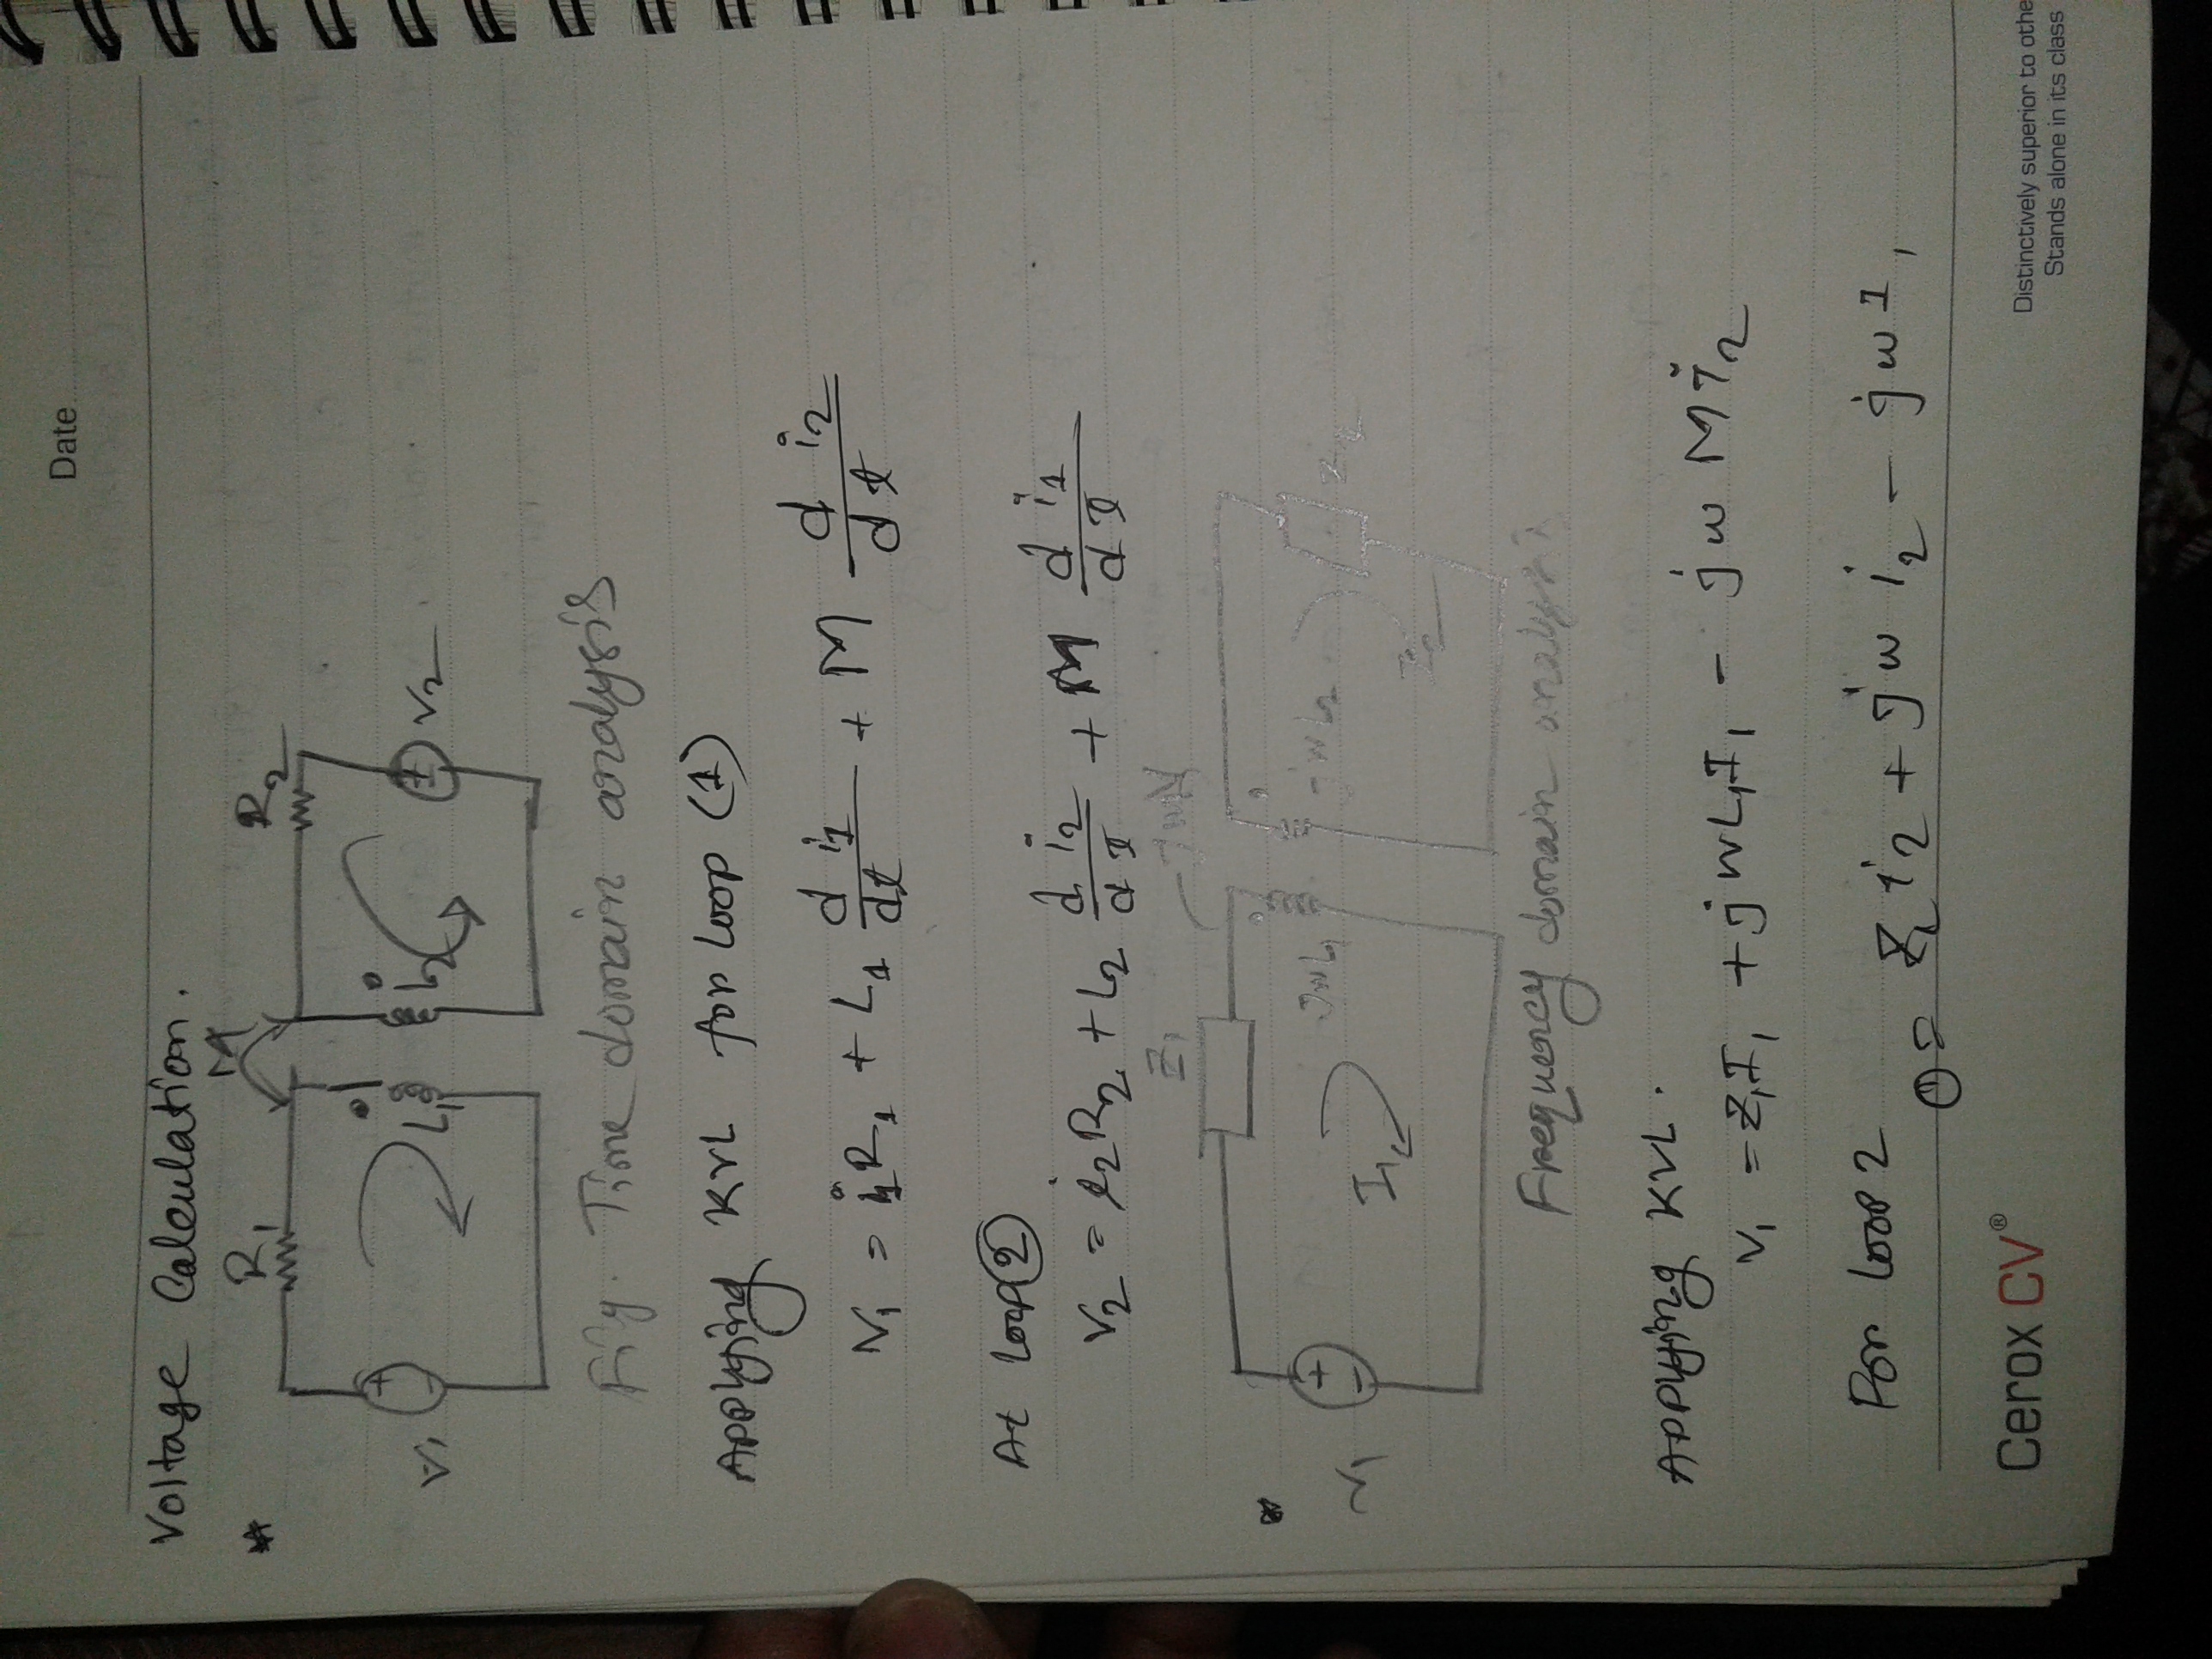 Date
Voltage Calculation.
M
R₁
R₂
V₁
+
-
L₁
L₂
V₂
Fig. Time domain analysis
Applying KVL for Loop (1)
V₁ = i₁R₁ + L₁ d i₁/dt + M d i₂/dt
At Loop ②
V₂ = i₂R₂ + L₂ d i₂/dt + M d i₁/dt
Z₁
jwM
V₁
+
-
I₁
jwL₁
jwL₂
I₂
Z₂
Frequency domain analysis
Applying KVL.
V₁ = Z₁I₁ + jwL₁I₁ - jw M i₂
For Loop 2
0 = Z₂ i₂ + jw i₂ - jw I₁
Cerox CV®
Distinctively superior to othe
Stands alone in its class